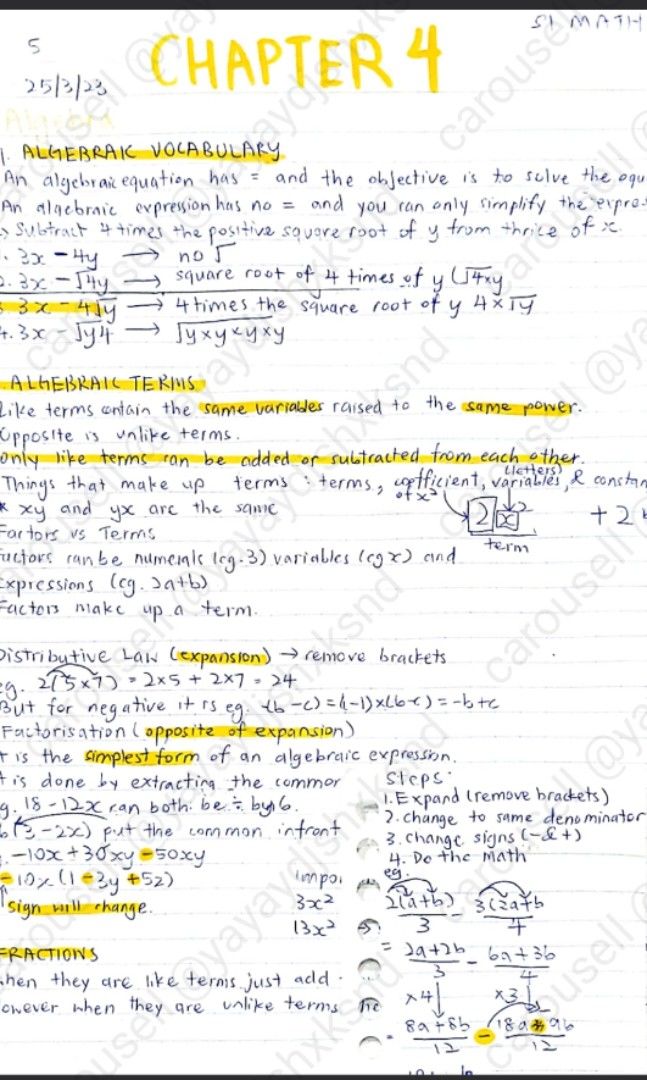 S1 MATH
5
CHAPTER 4
25/3/23
Algebra
1. ALGEBRAIC VOCABULARY
An algebraic equation has = and the objective is to solve the equ
An algebraic expression has no = and you can only simplify the expre
Subtract 4 times the positive square root of y from thrice of x.
1. 3x - 4y → no √
2. 3x - √4y → square root of 4 times of y (√4xy
3. 3x - 4√y → 4 times the square root of y 4×√y
4. 3x - √y4 → √y×y×y×y
ALGEBRAIC TERMS
Like terms contain the same variables raised to the same power.
Opposite is unlike terms.
Only like terms can be added or subtracted from each other.
(letters)
Things that make up terms: terms, coefficient, variables, & constan
of x²
* xy and yx are the same
2 x² + 2
term
Factors vs Terms
Factors can be numerals (eg. 3) variables (eg x) and
Expressions (eg. 2a+b)
Factors make up a term.
Distributive Law (expansion) → remove brackets
eg. 2(5×7) = 2×5 + 2×7 = 24
But for negative it is eg. -(b-c) = (-1)×(b-c) = -b+c
Factorisation (opposite of expansion)
It is the simplest form of an algebraic expression.
It is done by extracting the common
eg. 18-12x can both be ÷ by 6.
6(3-2x) put the common infront
-10x+30xy-50xy
-10x(1-3y+5z)
sign will change.
impo
3x²
13x²
Steps:
1. Expand (remove brackets)
2. change to same denominator
3. change signs (- & +)
4. Do the math
eg.
2(a+b)/3 - 3(2a+b/4
= 2a+2b/3 - 6a+3b/4
×4↓ ×3↓
= 8a+8b/12 - 18a+9b/12
FRACTIONS
When they are like terms just add.
However when they are unlike terms
carousell @yayaydjshxksnd